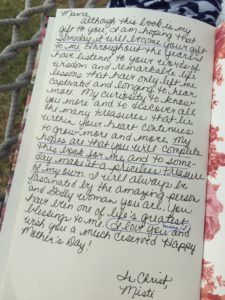 Mama,
although this book is my
gift to you, I am hoping that
someday it will become your gift
to me. Throughout the years I
have listened to your words of
wisdom and remarkable life
lessons that have only left me
captivated and longing to hear
more. My curiosity to know
you more and to discover all
the many treasures that lie
within your heart continues
to grow more and more. My
hopes are that you will complete
this book for me and to some-
day make it a priceless treasure
of my own. I will always be
fascinated by the amazing person
and Godly woman you are. You
have been one of life's greatest
blessing to me. I love you and
wish you a much deserved Happy
Mother's Day!
In Christ,
Misti